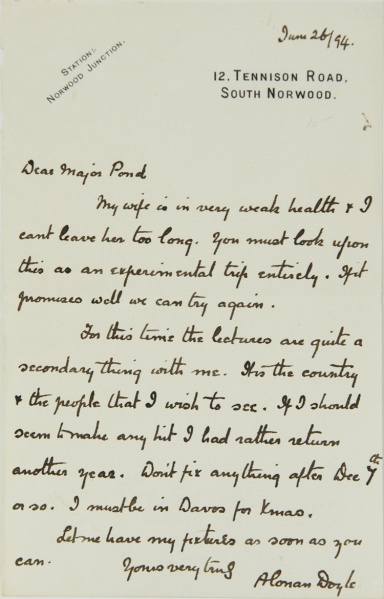 June 26/94.
Station,
Norwood Junction.
12, Tennison Road,
South Norwood.
Dear Major Pond
My wife is in very weak health & I
cant leave her too long. You must look upon
this as an experimental trip entirely. If it
promises well we can try again.
For this time the lectures are quite a
secondary thing with me. It is the country
& the people that I wish to see. If I should
seem to make any hit I had rather return
another year. Don't fix anything after Dec 7th
or so. I must be in Davos for Xmas.
Let me have my fixtures as soon as you
can.
Yours very truly
A Conan Doyle